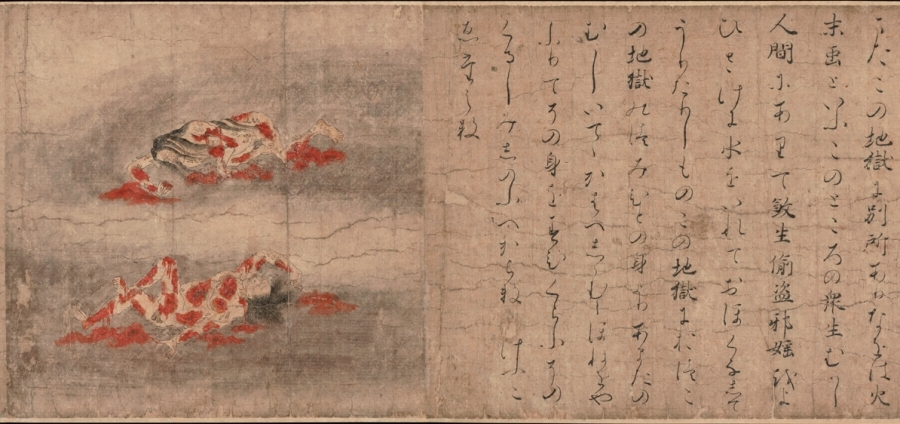 またこの地獄に別所ありなをは火
末虫といふこのところの衆生むかし
人間にありて殺生偸盗邪婬をよ
ひさけに水をいれておほくなして
うりたりしものこの地獄におつこ
の地獄のつみひとの身よりあまたの
むしいてゝかはへしゝむらほねをや
ふりてその身をはむくらふその
くるしみしのふへからす